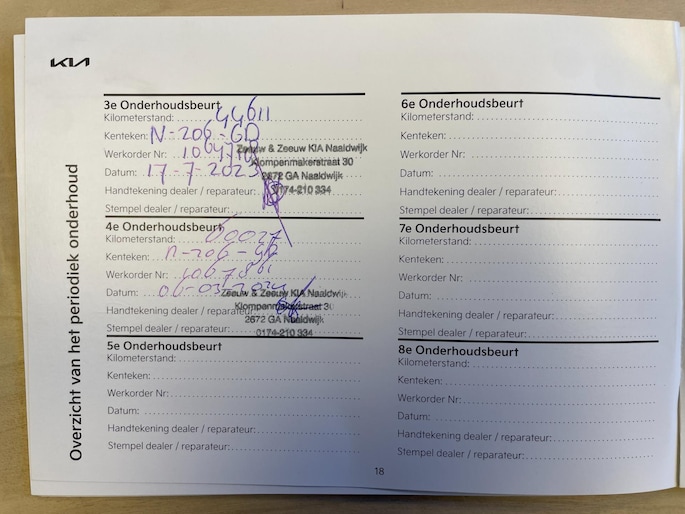 KIA
Overzicht van het periodiek onderhoud
3e Onderhoudsbeurt
Kilometerstand: 44611
Kenteken: N-206-GD
Werkorder Nr:
Datum: 17-7-2023
Handtekening dealer / reparateur:
Stempel dealer / reparateur:
Zeeuw & Zeeuw KIA Naaldwijk
Klompenmakerstraat 30
2672 GA Naaldwijk
0174-210 334
4e Onderhoudsbeurt
Kilometerstand: 60027
Kenteken: N-206-GD
Werkorder Nr:
Datum:
Handtekening dealer / reparateur:
Stempel dealer / reparateur:
Zeeuw & Zeeuw KIA Naaldwijk
Klompenmakerstraat 30
2672 GA Naaldwijk
0174-210 334
5e Onderhoudsbeurt
Kilometerstand:
Kenteken:
Werkorder Nr:
Datum:
Handtekening dealer / reparateur:
Stempel dealer / reparateur:
6e Onderhoudsbeurt
Kilometerstand:
Kenteken:
Werkorder Nr:
Datum:
Handtekening dealer / reparateur:
Stempel dealer / reparateur:
7e Onderhoudsbeurt
Kilometerstand:
Kenteken:
Werkorder Nr:
Datum:
Handtekening dealer / reparateur:
Stempel dealer / reparateur:
8e Onderhoudsbeurt
Kilometerstand:
Kenteken:
Werkorder Nr:
Datum:
Handtekening dealer / reparateur:
Stempel dealer / reparateur:
18